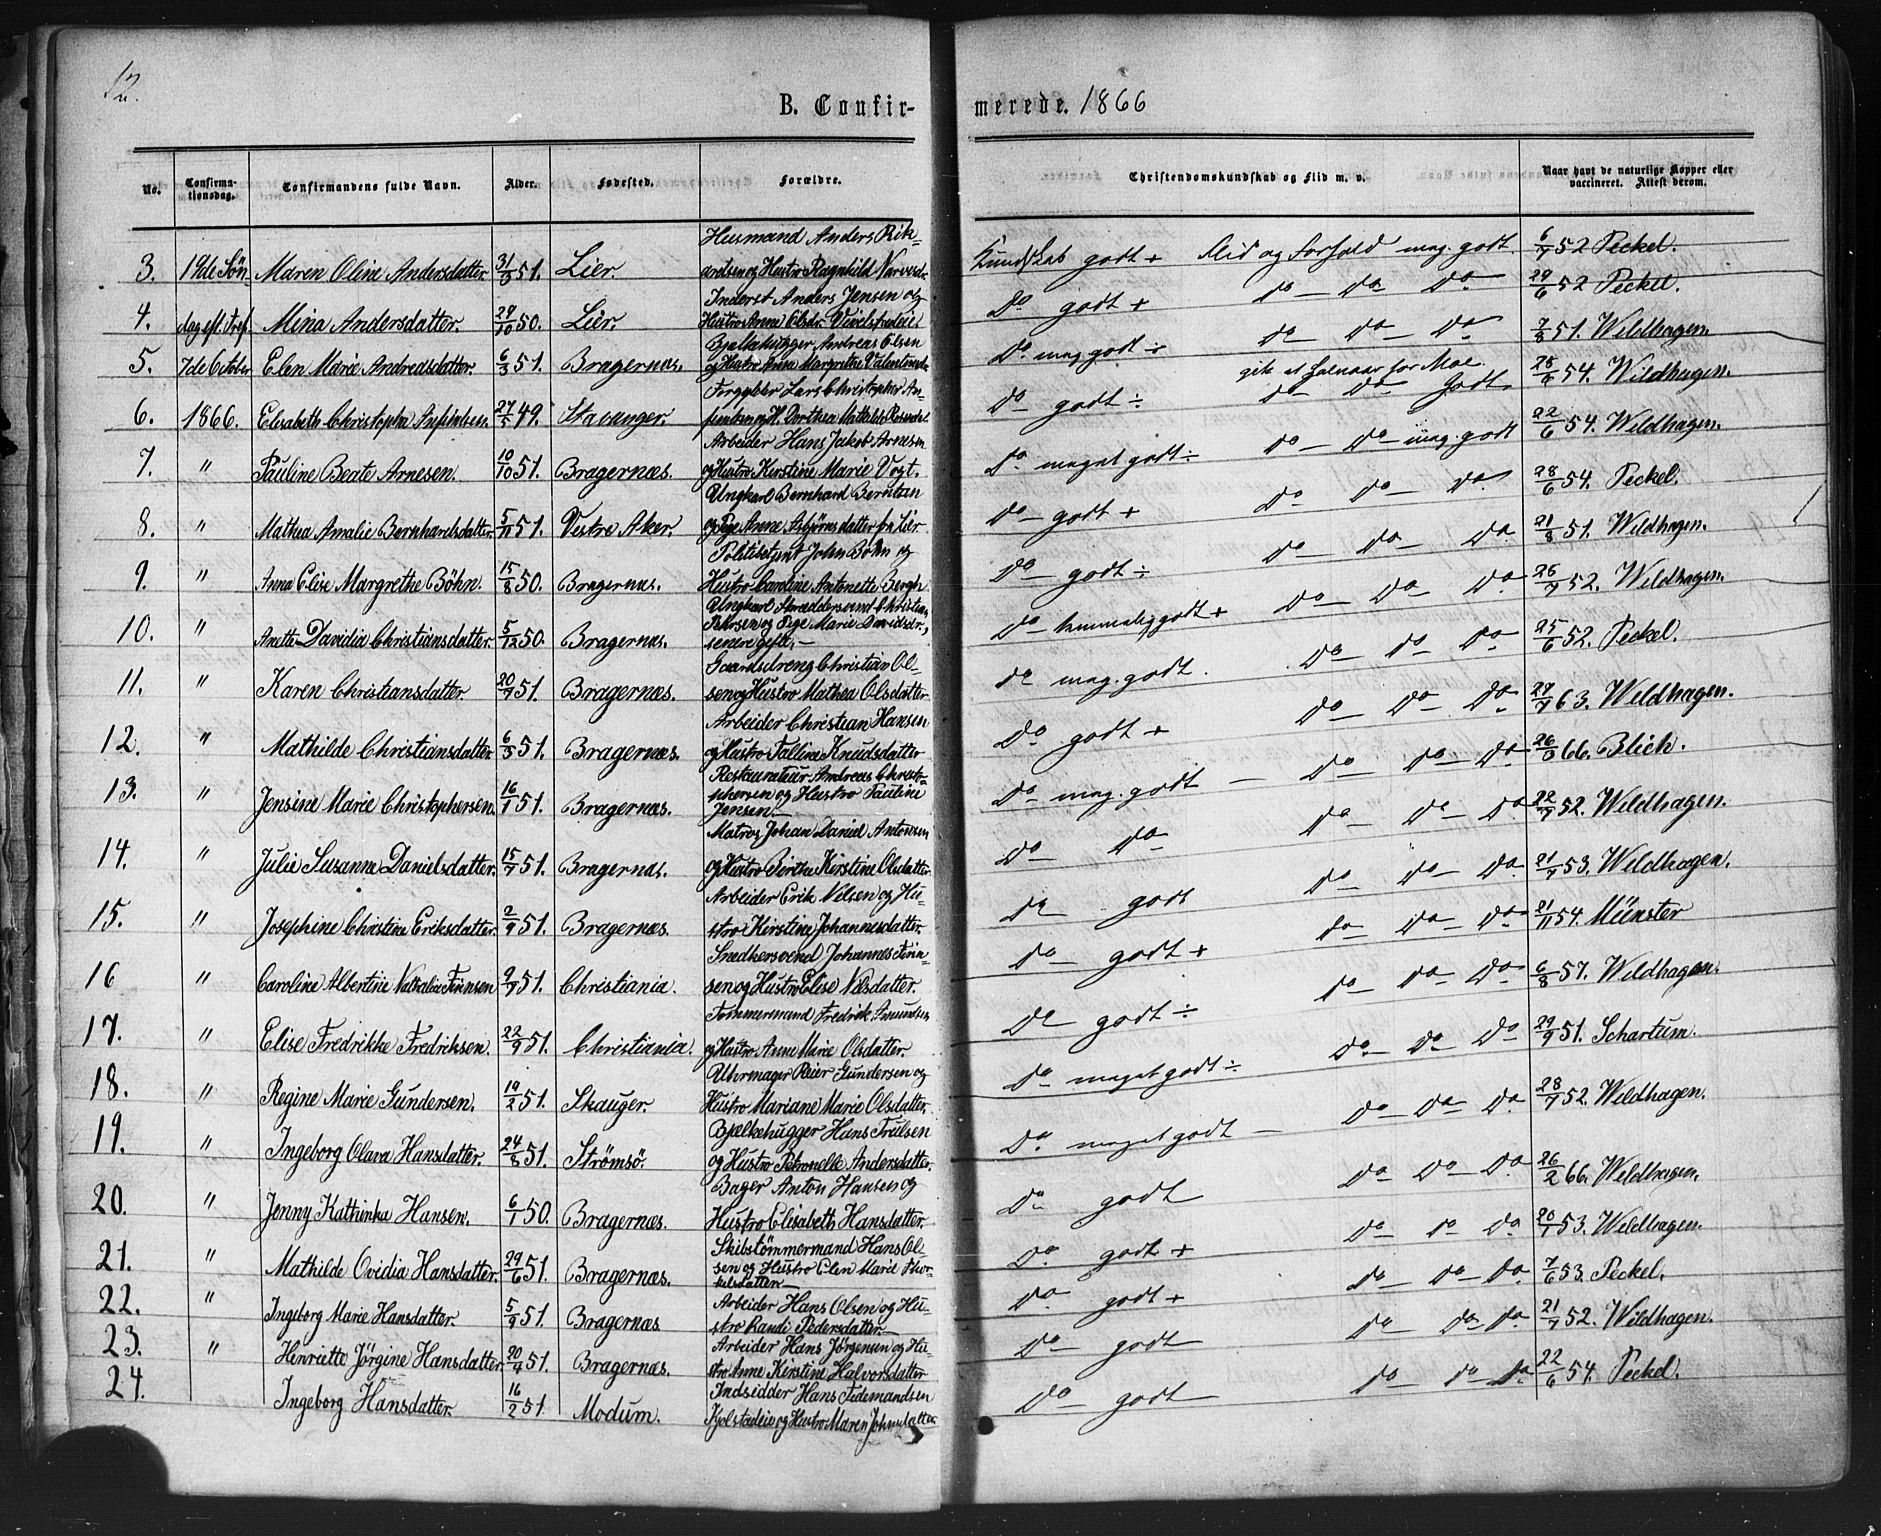 12.
B. Confirmerede. 1866
No. Confirmationsdag. Confirmandens fulde Navn. Alder. Fødested. Forældre. Christendomskundskab og Flid m. v. Naar havt de naturlige Kopper eller vaccineret. Attest derom.
Husmand Anders Rik-
3. 19de Søn Maren Oline Andersdatter. 31/3 51. Lier. og Hustro Ragnhild Kundskab godt + Flid og Forhold meg. godt 6/7 52 Peckel.
Inderst Anders Jensen og
4. dag eft. Tref. Mina Andersdatter. 29/10 50. Lier. Hustro Anne Olsdr. Do godt + Do Do Do 29/6 52 Peckel.
Bjelkehugger Andreas Olsen
5. 7de October Elen Marie Andreasdatter. 6/3 51. Bragernæs. og Hustro Anne Margrethe Do meg godt ÷ Do Do Do 7/8 51. Wildhagen.
Forgylder Lars Christopher
6. 1866. Elisabeth Christopha 27/5 49. Stavanger. Dorthea Mathilde Do godt ÷ Do Do Godt 54. Wildhagen.
Arbeider Hans Jakob Arnesen
7. " Pauline Beate Arnesen. 10/10 51. Bragernæs. og Hustro Kirstine Marie Vogt. Do meget godt ÷ Do Do meg. godt 22/6 54. Wildhagen.
Ungkarl Bernhard Berntsen
8. " Mathea Amalie Bernhardsdatter. 5/11 51. Vestre Aker. og Pige Anne Asbjørnsdatter fra Lier Do godt + Do Do Do 28/6 54. Peckel.
Politibetjent John Bøhn og
9. " Anna Elise Margrethe Bøhn. 15/8 50. Bragernæs. Hustro Caroline Antonette Bergh Do godt ÷ Do Do Do 21/8 51. Wildhagen.
Ungkarl Skræddersvend Christian
10. " Anette Davidia Christiansdatter. 5/12 50. Bragernæs. Pedersen og Pige Marie Davidsdr., Do temmelig godt + Do Do Do 26/7 52. Wildhagen.
senere gift. —
Gaardsdreng Christian Ol-
11. " Karen Christiansdatter. 20/7 51. Bragernæs. sen og Hustro Mathea Olsdatter Do meg. godt. Do Do Do 25/6 52. Peckel.
Arbeider Christian Hansen
12. " Mathilde Christiansdatter. 6/3 51. Bragernæs. og Hustro Talline Knudsdatter Do godt + Do Do Do 27/7 63. Wildhagen.
Restauratuur Andreas Christo-
13. " Jensine Marie Christophersen. 16/1 51. Bragernæs. phersen og Hustro Pauline Do meg. godt — Do Do Do 26/3 66. Blich.
Jensen. —
Matros Johan Daniel Antonsen
14. " Julie Susanne Danielsdatter. 15/7 51. Bragernæs. og Hustro Birthe Kirstine Olsdatter Do Do Do Do Do 22/7 52. Wildhagen.
Arbeider Erik Nilsen og Hu-
15. " Josephine Christine Eriksdatter. 2/9 51. Bragernæs. stro Kirstine Johannesdatter. Do godt Do Do Do 21/7 53. Wildhagen.
Snedkersvend Johannes Finn-
16 " Caroline Albertine Nathalia Finnsen 9/7 51. Christiania. sen og Hustro Elise Nilsdatter. Do godt + Do Do Do 21/11 54. Münster
Tømmermand Fredrik Amundsen
17. " Elise Fredrikke Fredriksen. 22/9 51. Christiania. og Hustro Anne Marie Olsdatter. Do godt ÷ Do Do Do 6/8 57. Wildhagen.
Uhrmager Reier Gundersen og
18. " Regine Marie Gundersen. 19/2 51. Skauger. Hustro Mariane Marie Olsdatter. Do meget godt ÷ Do Do Do 29/9 51. Schartum.
Bjælkehugger Hans Trulsen
19. " Ingeborg Olava Hansdatter. 24/8 51. Strømsø. og Hustro Petronelle Andersdatter. Do meget godt — Do Do Do 28/7 52. Wildhagen.
Bager Anton Hansen og
20. " Jenny Kathinka Hansen. 6/1 50. Bragernæs. Hustro Elisabeth Hansdatter. Do godt Do Do Do 26/2 66. Wildhagen.
Skibstømmermand Hans Ol-
21. " Mathilde Ovidia Hansdatter. 29/6 51. Bragernæs. sen og Hustro Elen Marie Thor- Do godt + Do Do Do 20/7 53. Wildhagen.
kelsdatter —
Arbeider Hans Olsen og Hu-
22. " Ingeborg Marie Hansdatter. 5/9 51. Bragernæs stro Randi Pedersdatter. — Do godt + Do Do Do 7/6 53. Peckel.
Arbeider Hans Jørgensen og Hu-
23. " Henriette Jørgine Hansdatter. 20/4 51. Bragernæs. stro Anne Kirstine Halvorsdatter Do godt Do Do Do 21/7 52. Wildhagen.
Indsidder Hans Tidemandsen
24. Ingeborg Hansdatter. 16/2 51. Modum. og Hustro Maren Johnsdatter Do godt Do Do Do 22/6 54. Peckel.